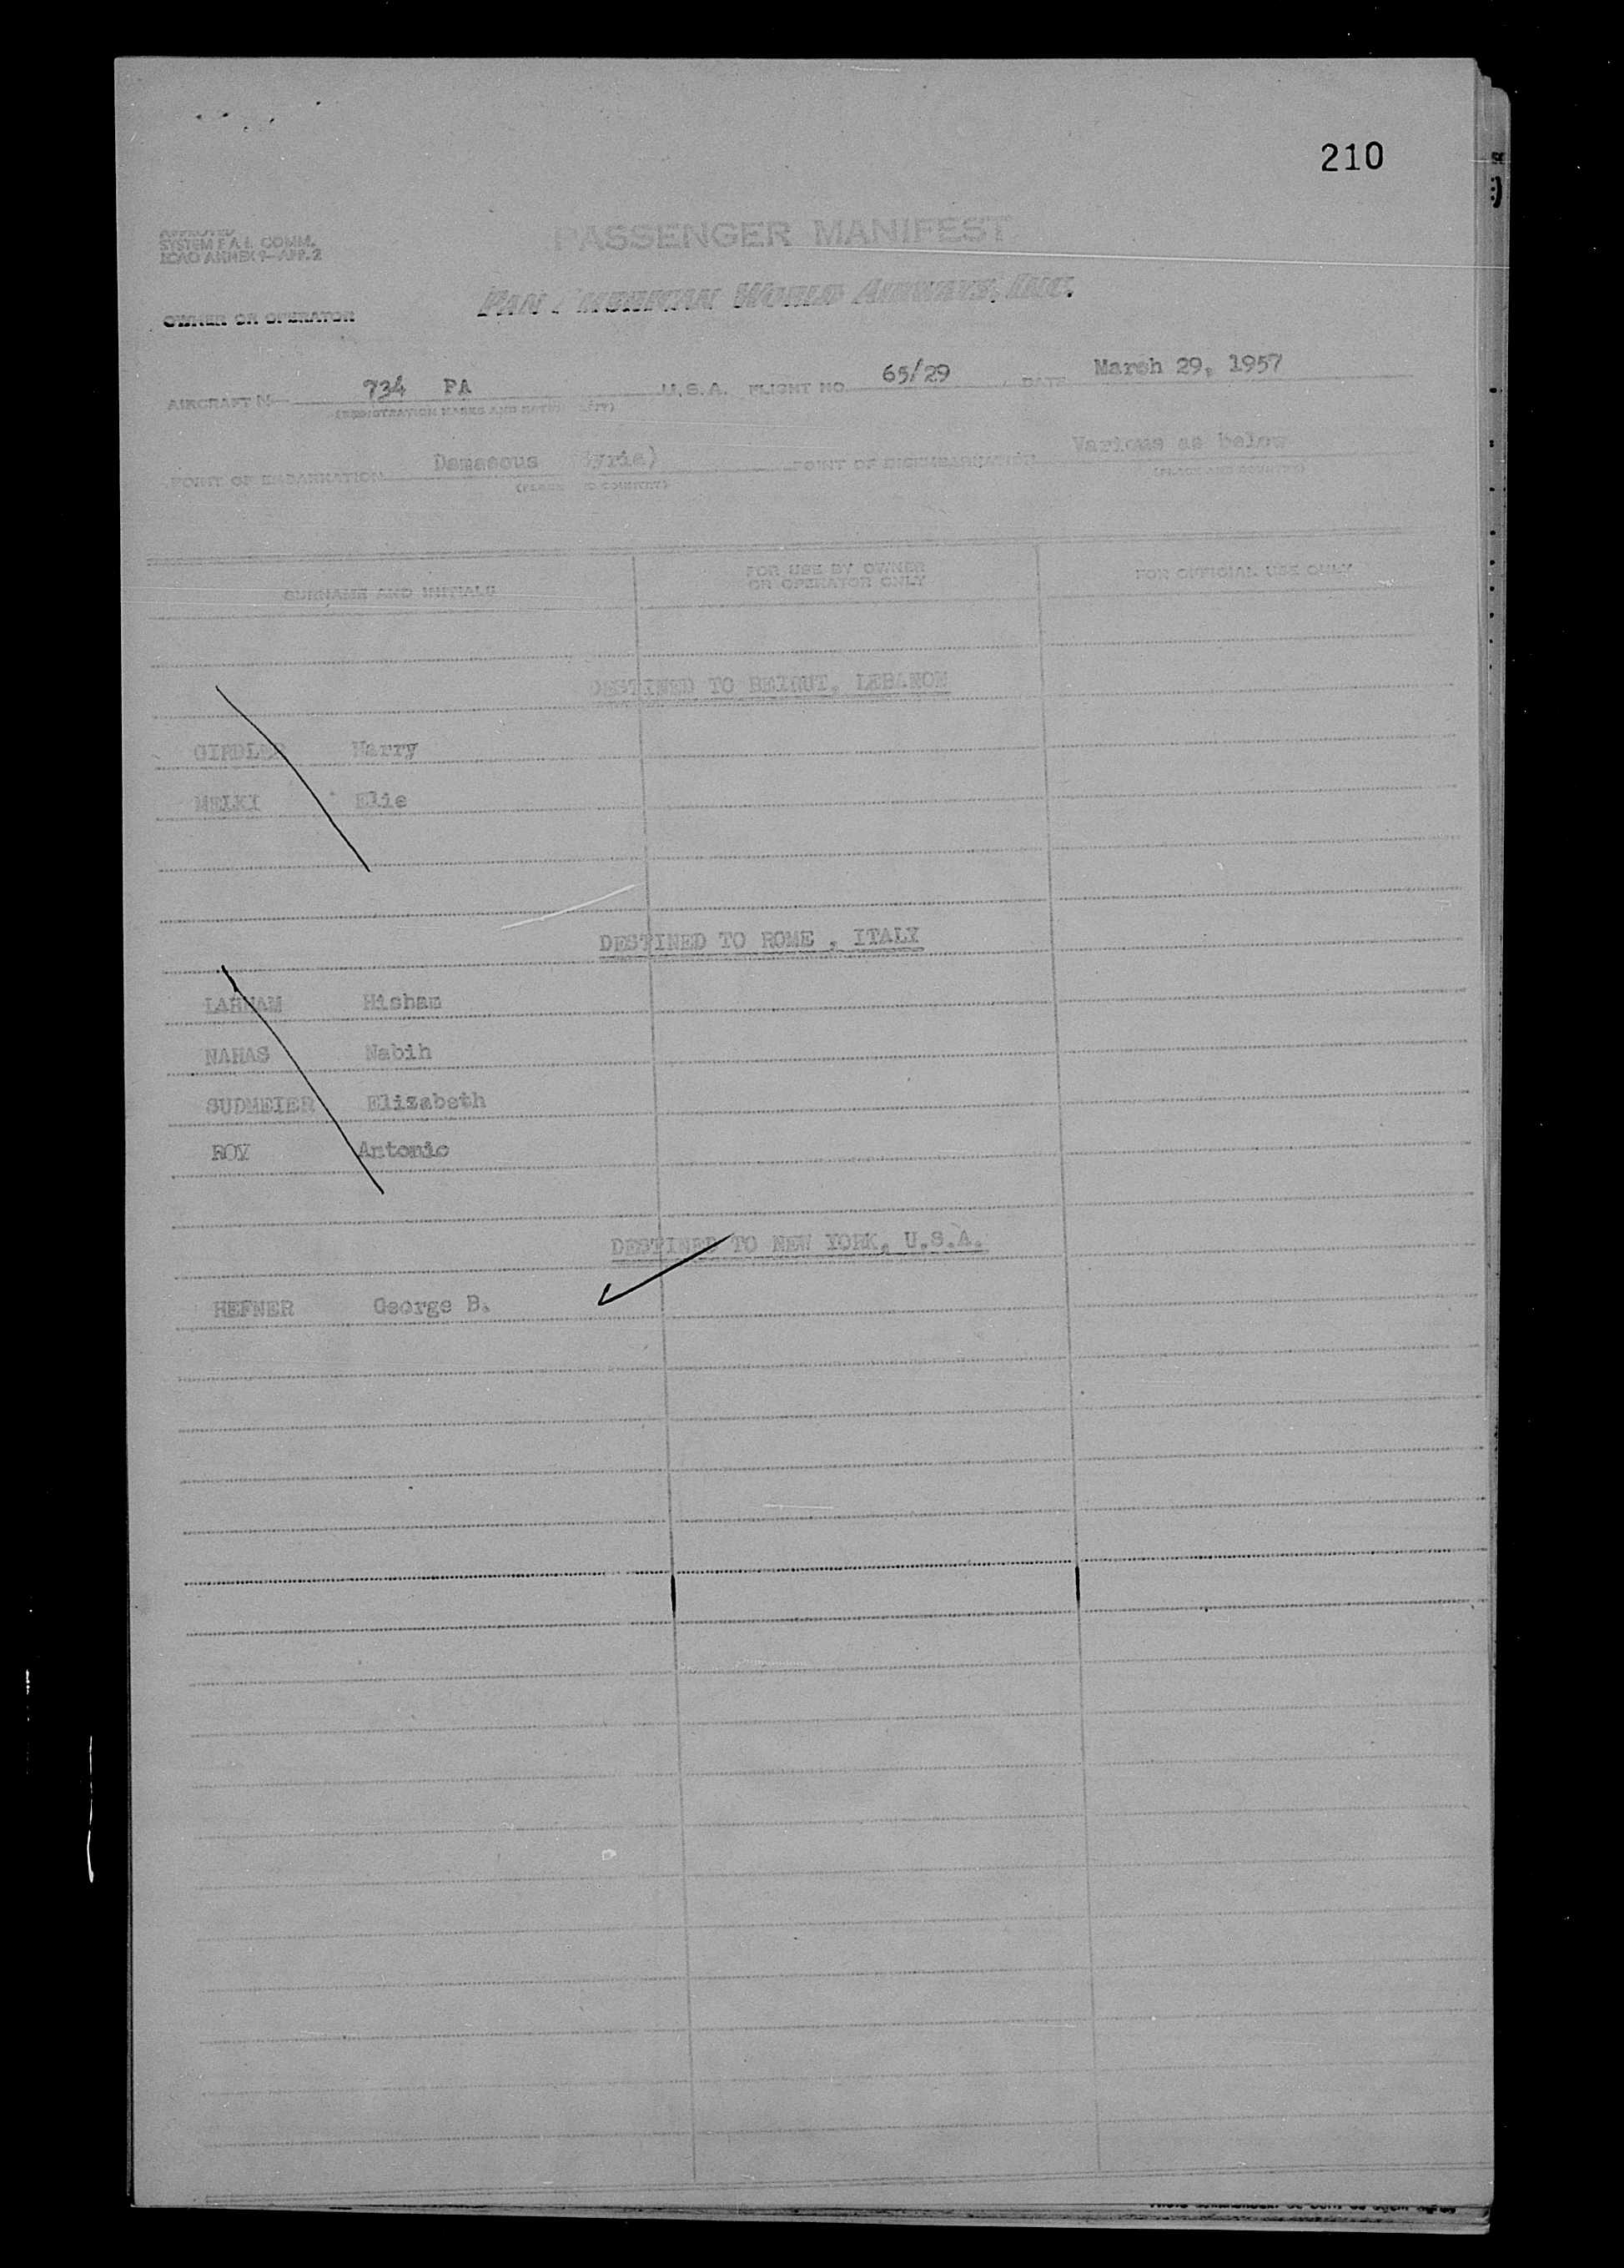 210
APPROVED
SYSTEM F.A.L. COMM.
ICAO ANNEX 9-APP. 2
PASSENGER MANIFEST
PAN AMERICAN WORLD AIRWAYS, INC.
OWNER OR OPERATOR
AIRCRAFT N 734 PA U.S.A. FLIGHT NO. 65/29 DATE March 29, 1957
(REGISTRATION MARKS AND NATIONALITY)
POINT OF EMBARKATION Damascus (Syria) POINT OF DISEMBARKATION Various as below
(PLACE AND COUNTRY) (PLACE AND COUNTRY)
SURNAME AND INITIALS FOR USE BY OWNER OR OPERATOR ONLY FOR OFFICIAL USE ONLY
DESTINED TO BEIRUT, LEBANON
GIRDLER Harry
MELKI Elie
DESTINED TO ROME , ITALY
LAHHAM Hisham
NAHAS Nabih
SUDMEIER Elizabeth
ROY Antonio
DESTINED TO NEW YORK, U.S.A.
HEFNER George B.